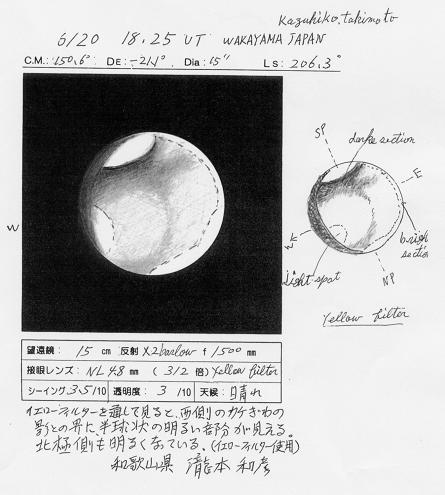 Kazuhiko.takimoto
6/20 18.25 UT WAKAYAMA JAPAN
C.M.: 150.6° DE: -21.1° Dia: 15" Ls: 206.3°
SP
darke section
E
W
bright section
light spot
NP
Yellow filter
望遠鏡: 15 cm 反射 X2barlow f 1500 mm
接眼レンズ: NL 4.8 mm (312 倍) Yellow filter
シーイング 3.5/10 透明度: 3 /10 天候: 晴れ
イエローフィルターを通して見ると、西側のカケぎわの
影との界に半球状の明るい部分が見える。
北極側も明るくなっている。(イエローフィルター使用)
和歌山県 瀧本 和彦